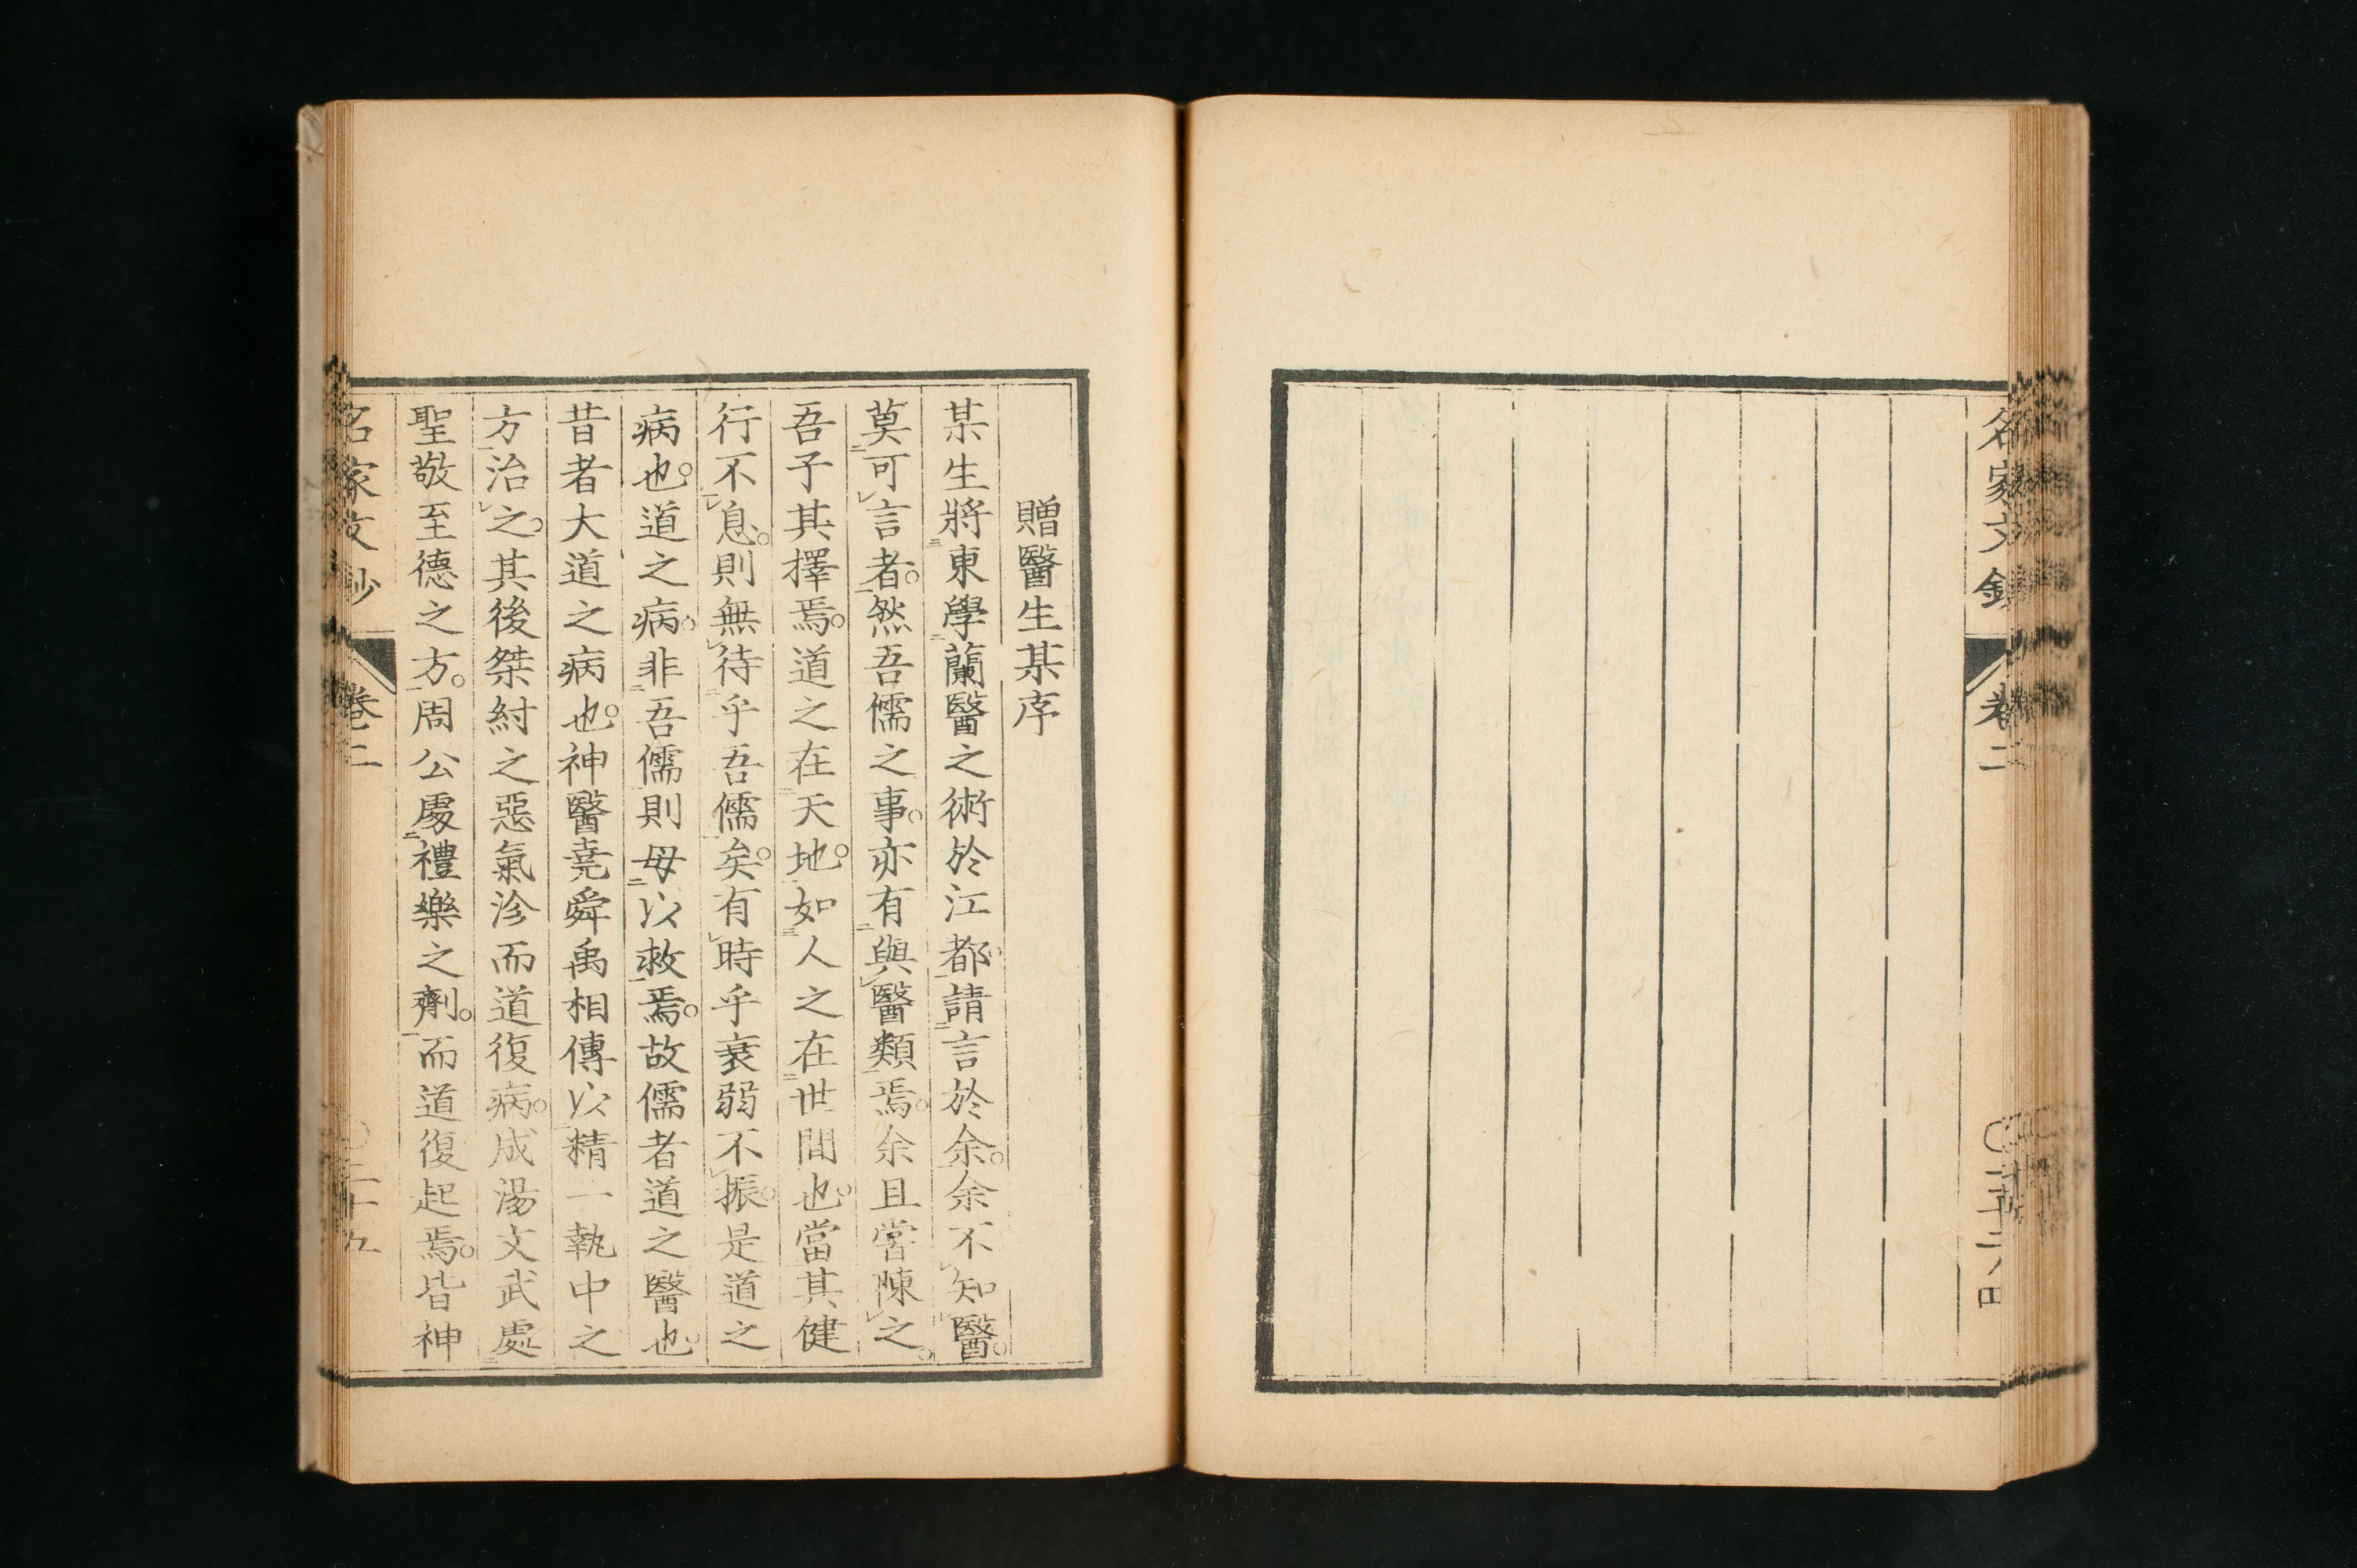 名家文鈔
卷二
贈醫生某序
某生將東學蘭醫之術於江都請言於余余不知醫
莫可言者然吾儒之事亦有與醫類焉余且嘗陳之
吾子其擇焉道之在天地如人之在世間也當其健
行不息則無待乎吾儒矣有時乎衰弱不振是道之
病也道之病非吾儒則毋以救焉故儒者道之醫也
昔者大道之病也神醫堯舜禹相傳以精一執中之
方治之其後桀紂之惡氣沴而道復病成湯文武處
聖敬至德之方周公處禮樂之劑而道復起焉皆神
名家文鈔
卷二
二十五